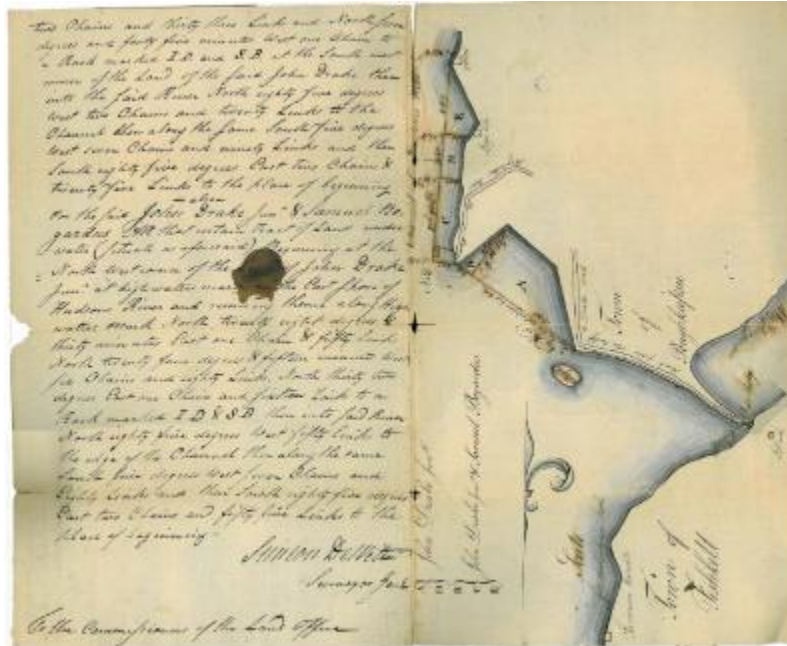 two Chains and thirty three Links and North five
degrees and forty five minutes West one Chain to
a Rock marked I.D. and S.B. at the South west
corner of the Land of the said John Drake then
into the said River North eighty five degrees
West two Chains and twenty Links to the
Channel then along the same South five degrees
West seven Chains and ninety Links and then
South eighty five degrees East two Chains &
twenty five Links to the place of beginning
also
For the said John Drake Junr & Samuel Bo
gardus All that certain tract of Land under
water (situate as aforesaid) Beginning at the
North west corner of the John Drake
Junr at high water mark the East shore of
Hudsons River and running thence along High
water mark North twenty eight degrees &
thirty minutes East one Chain & fifty Links
North twenty four degrees & fifteen minutes West
six Chains and eighty Links, North thirty two
degrees East one Chain and fifteen Links to a
Rock marked I.D & S.B then into said River
North eighty five degrees West fifty Links to
the edge of the Channel then along the same
South five degrees West seven Chains and
Eighty Links and then South eighty five degrees
East two Chains and fifty five Links to the
Place of beginning
Simeon DeWitt
Surveyor Genl
To the Commissioners of the Land Office
John Drake Junr
John Drake Junr & Samuel Bogardus
A
B
C
Town
of
Poughkeepsie
Town of
Fishkill